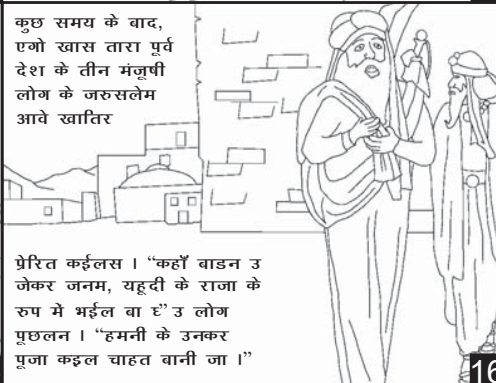 कुछ समय के बाद,
एगो खास तारा पूर्व
देश के तीन मंजूषी
लोग के जरुसलेम
आवे खातिर
प्रेरित कईलस । “कहाँ बाडन उ
जेकर जनम, यहूदी के राजा के
रुप में भईल बा घ” उ लोग
पूछलन । “हमनी के उनकर
पूजा कइल चाहत बानी जा ।”
16